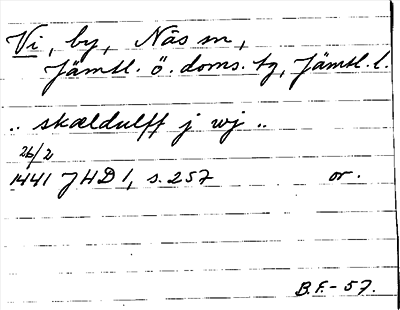 Vi, by, Näs sn,
Jämtl. ö. doms. tg, Jämtl. l.
.. skældulff j wj ..
26/2
1441 JHD 1, s. 257 or.
B.F. - 57.